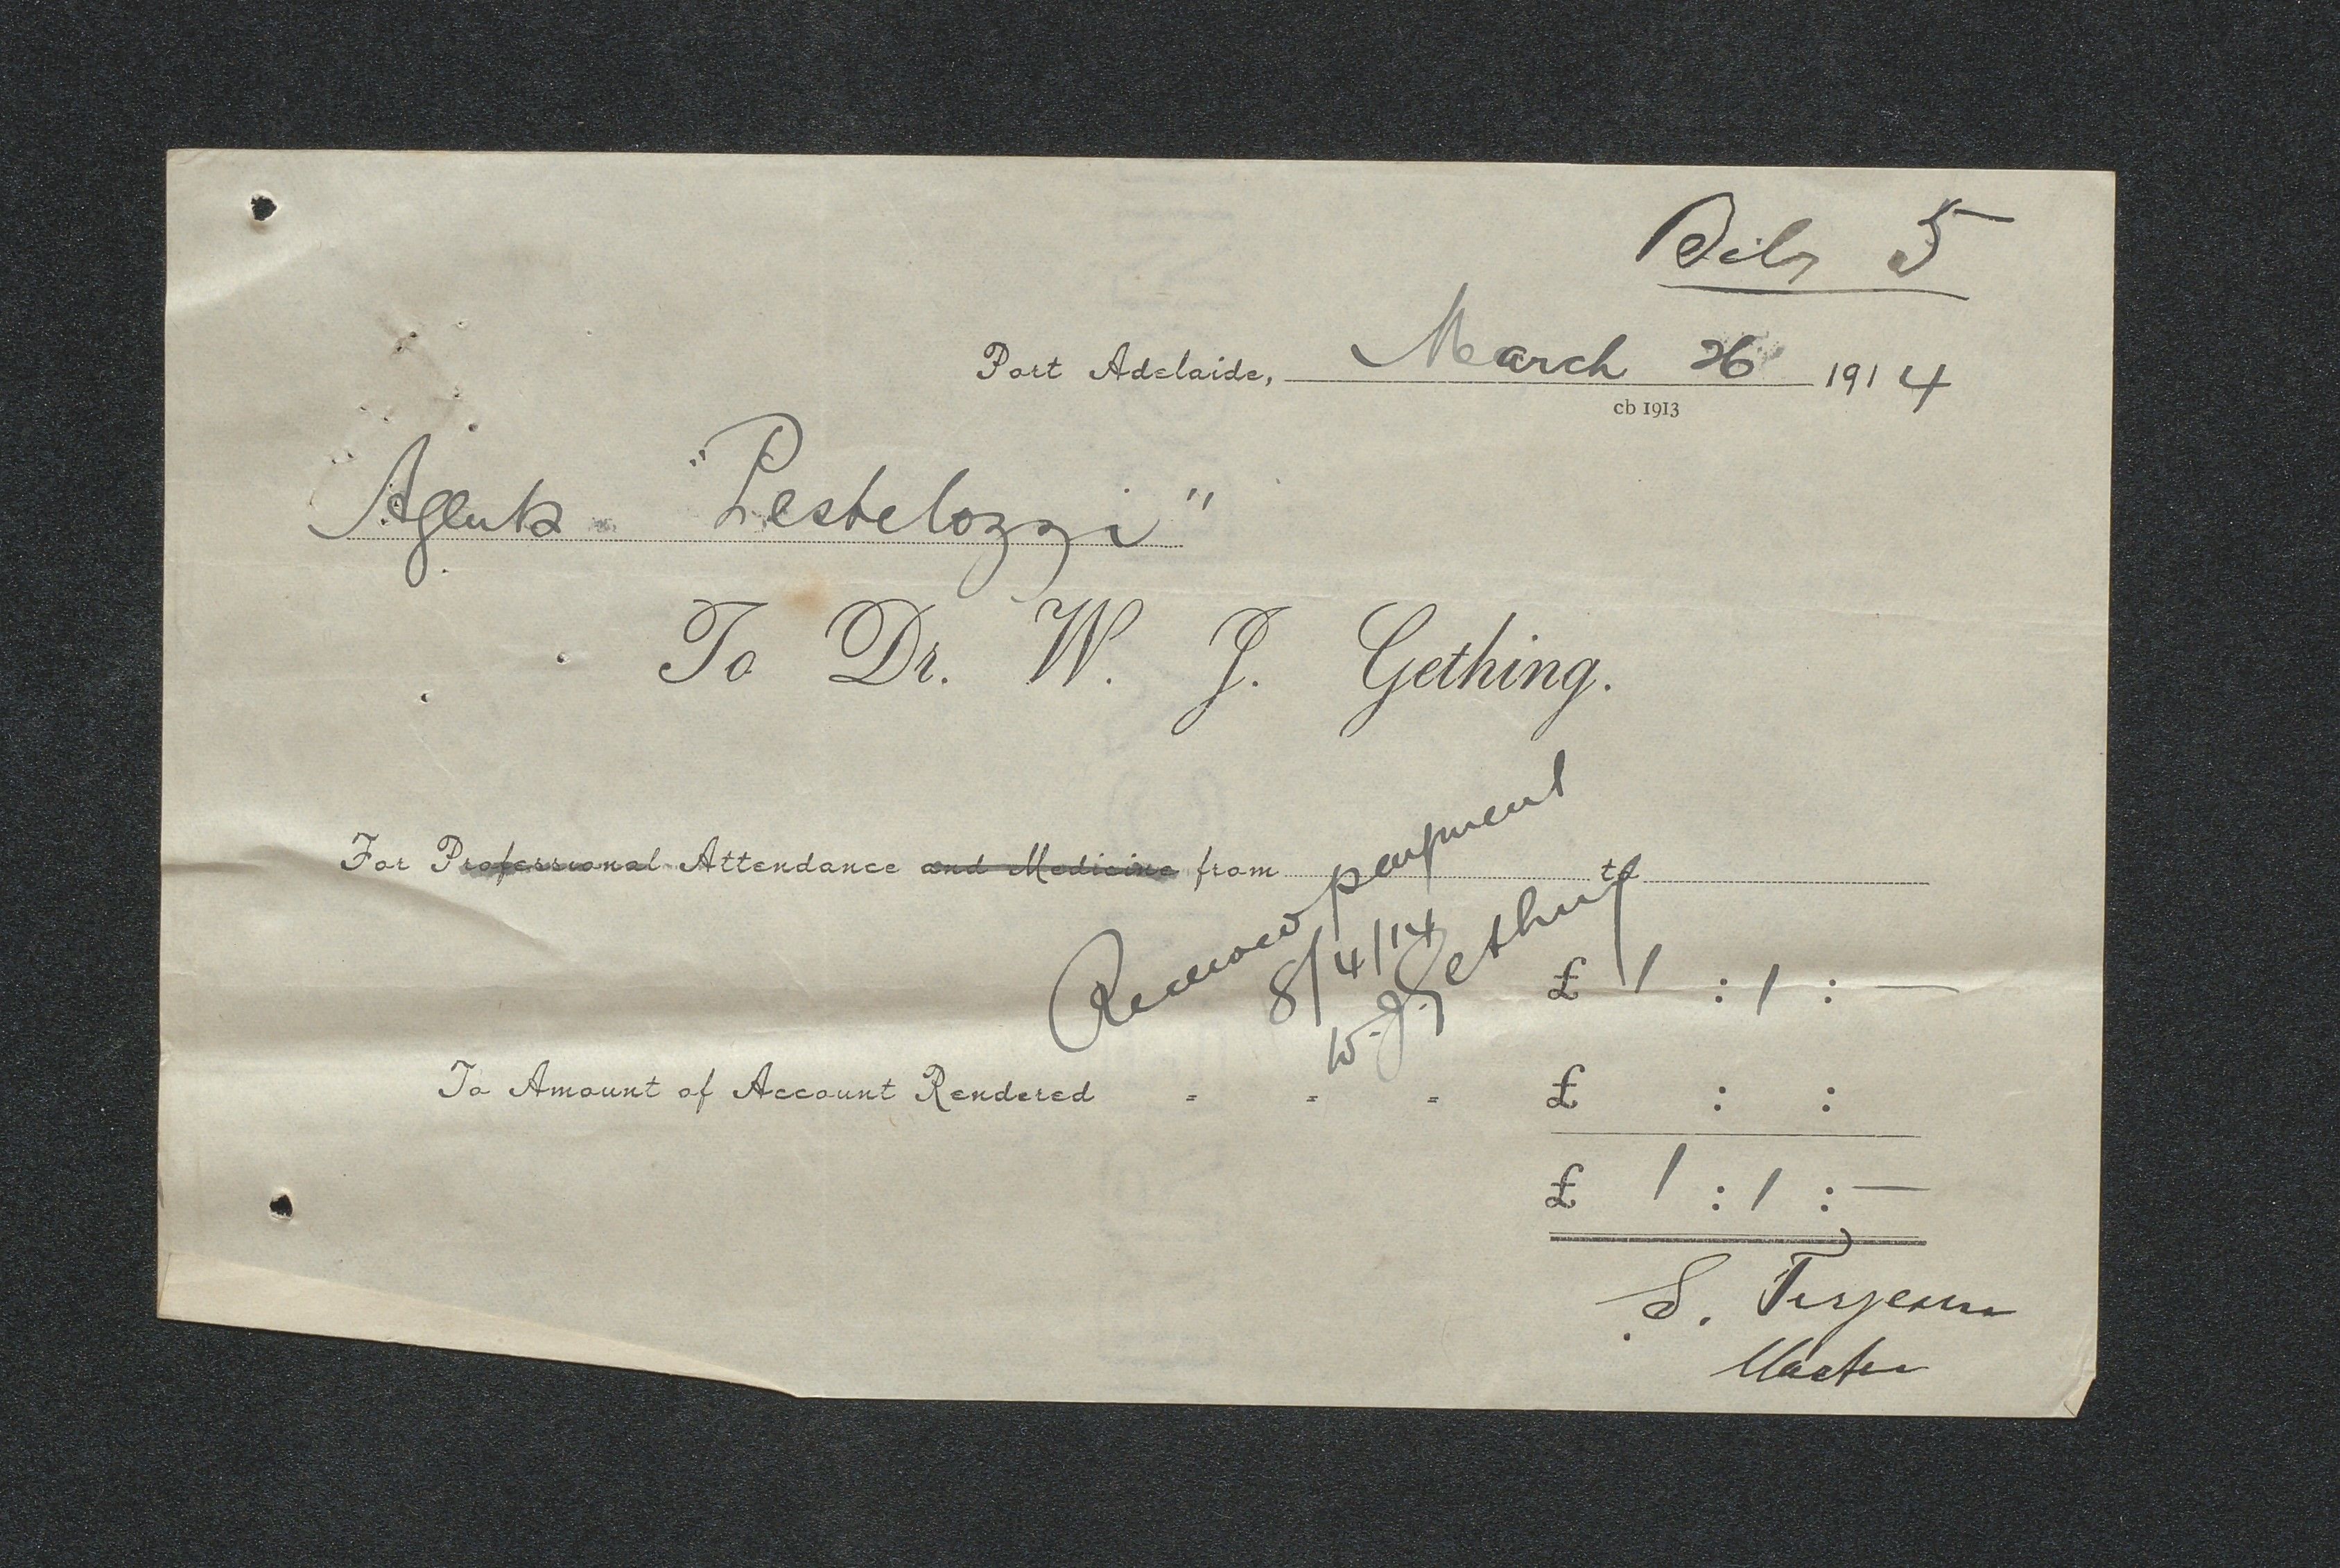 Bil 5
Port Adelaide, March 26 1914
cb 1913
Agents "Pestelozzi"
To Dr. W. J. Gething.
For Professional Attendance and Medicine from to
Received payment
8/4/14
W. J. Gething
£ 1 : 1 : —
To Amount of Account Rendered - - - £ : :
£ 1 : 1 : —
S. Terjesen
Master